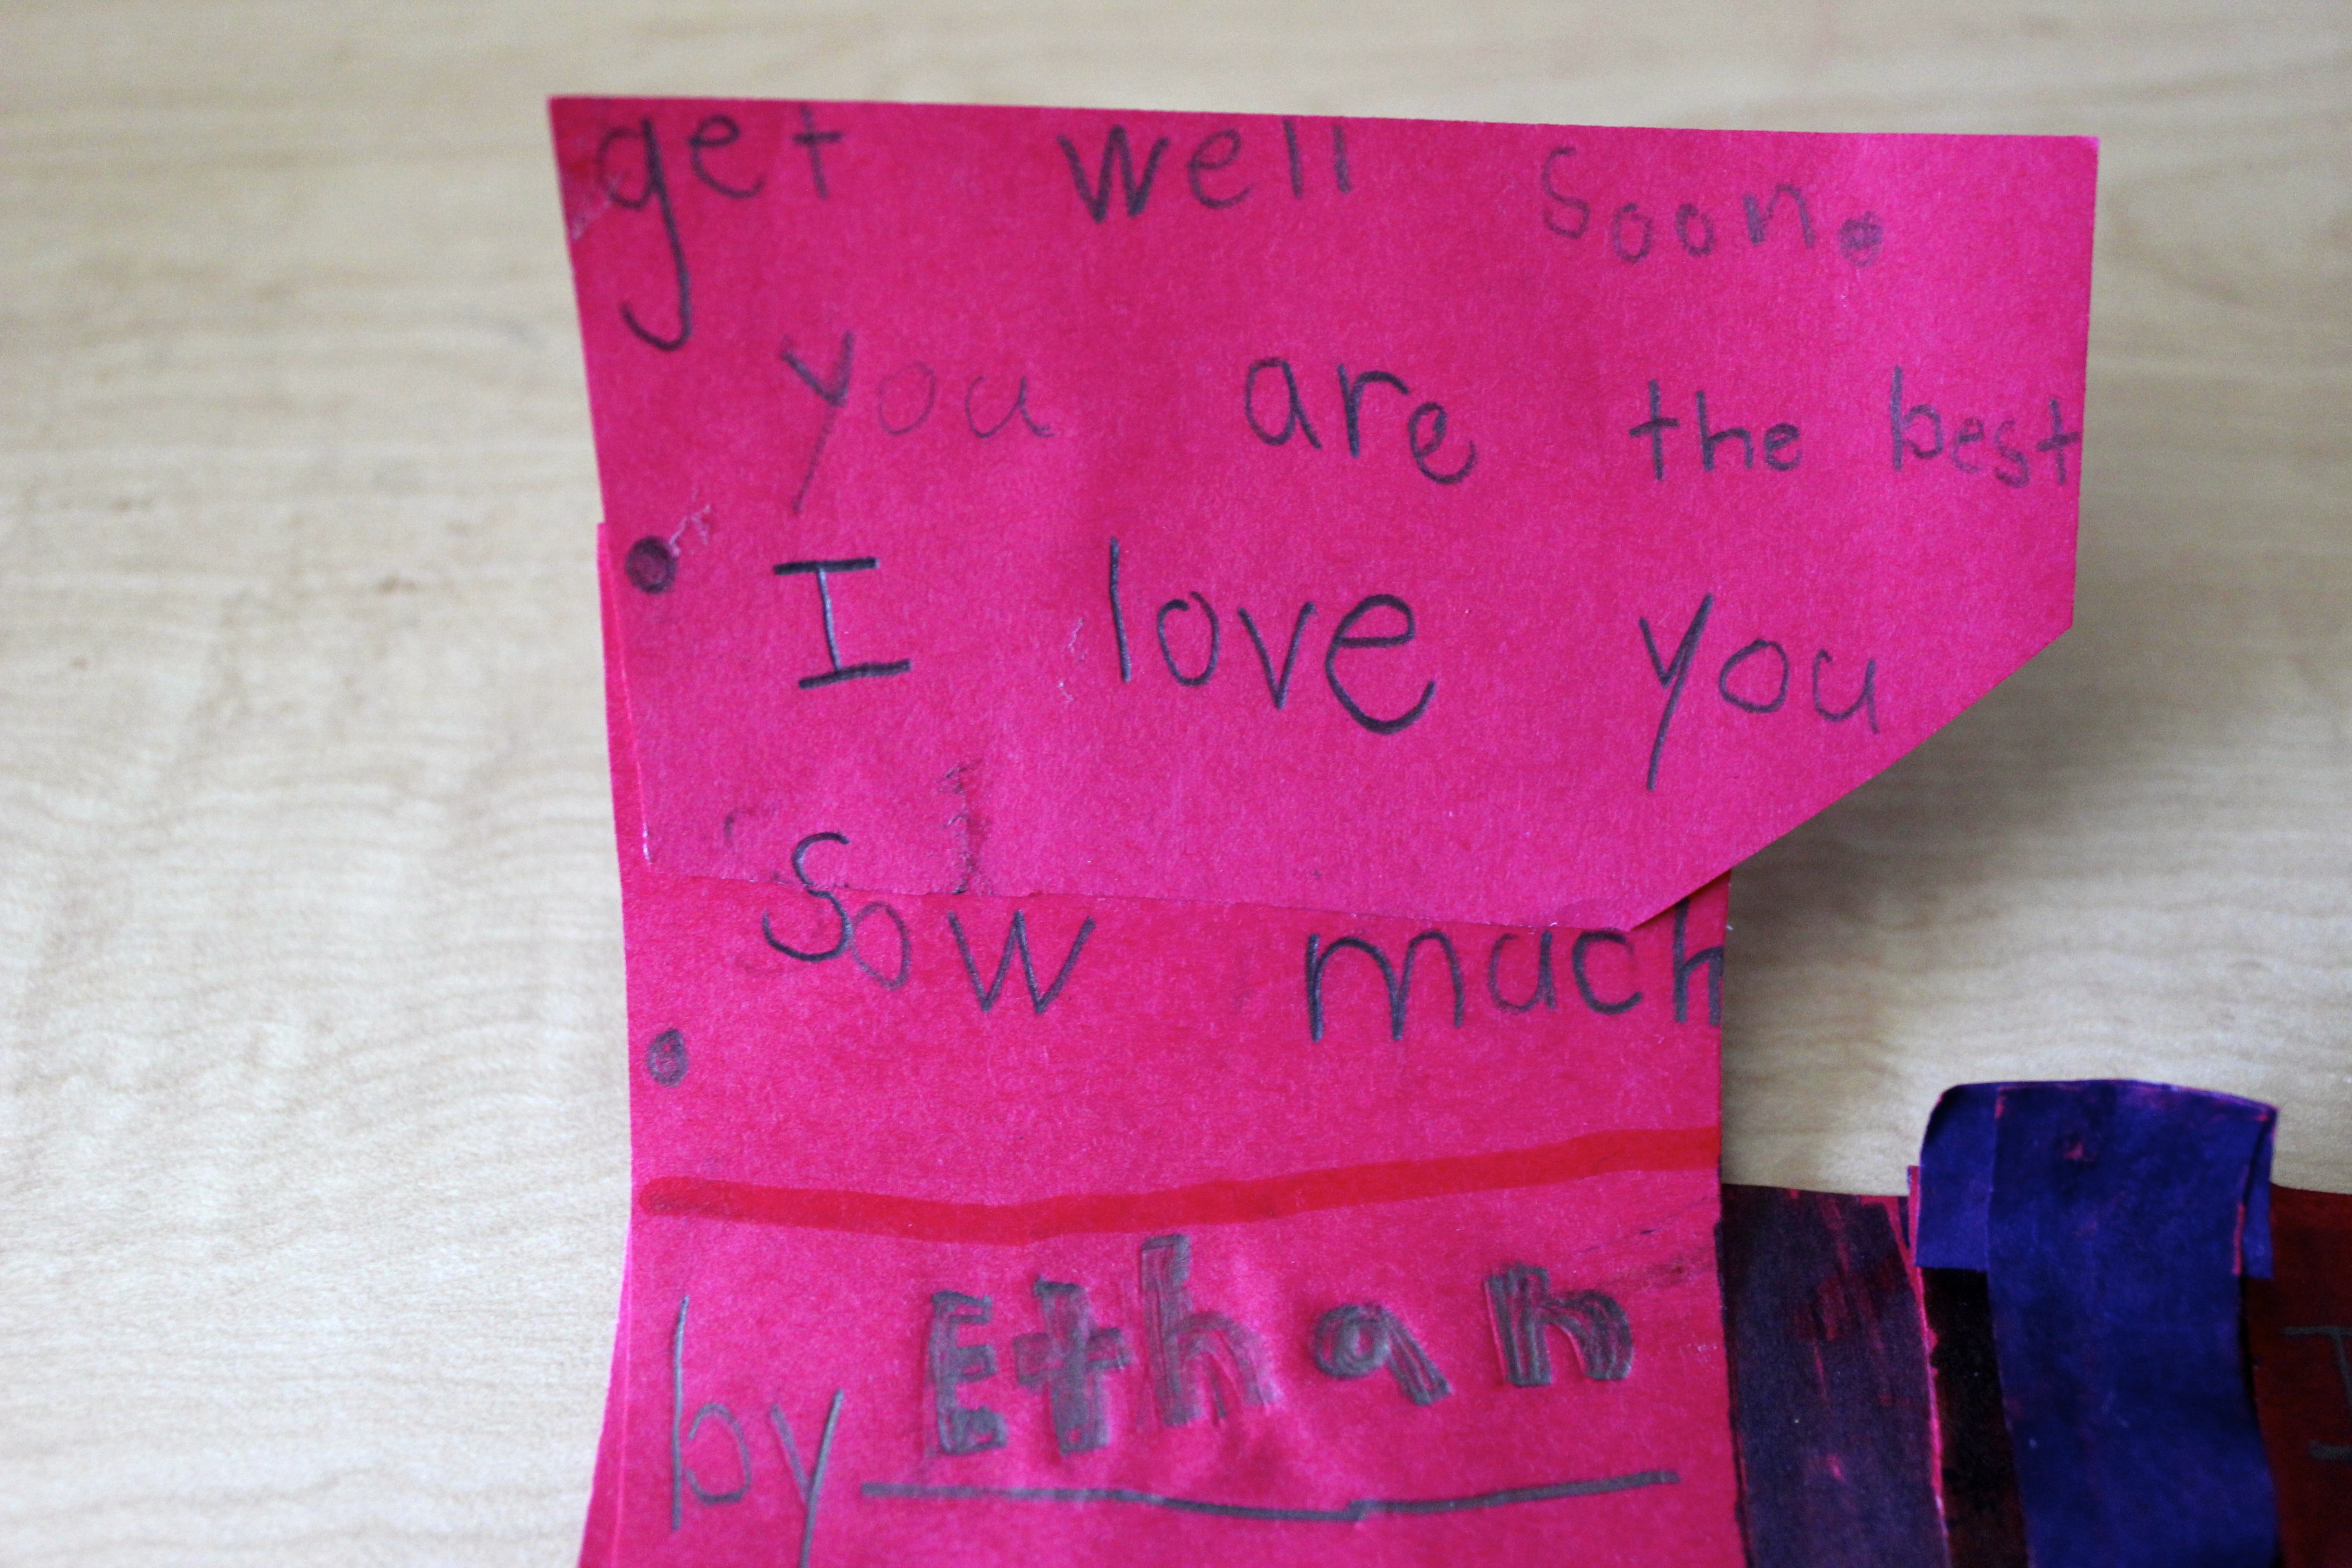 get well soon.
you are the best
. I love you
Sow much
.
by Ethan